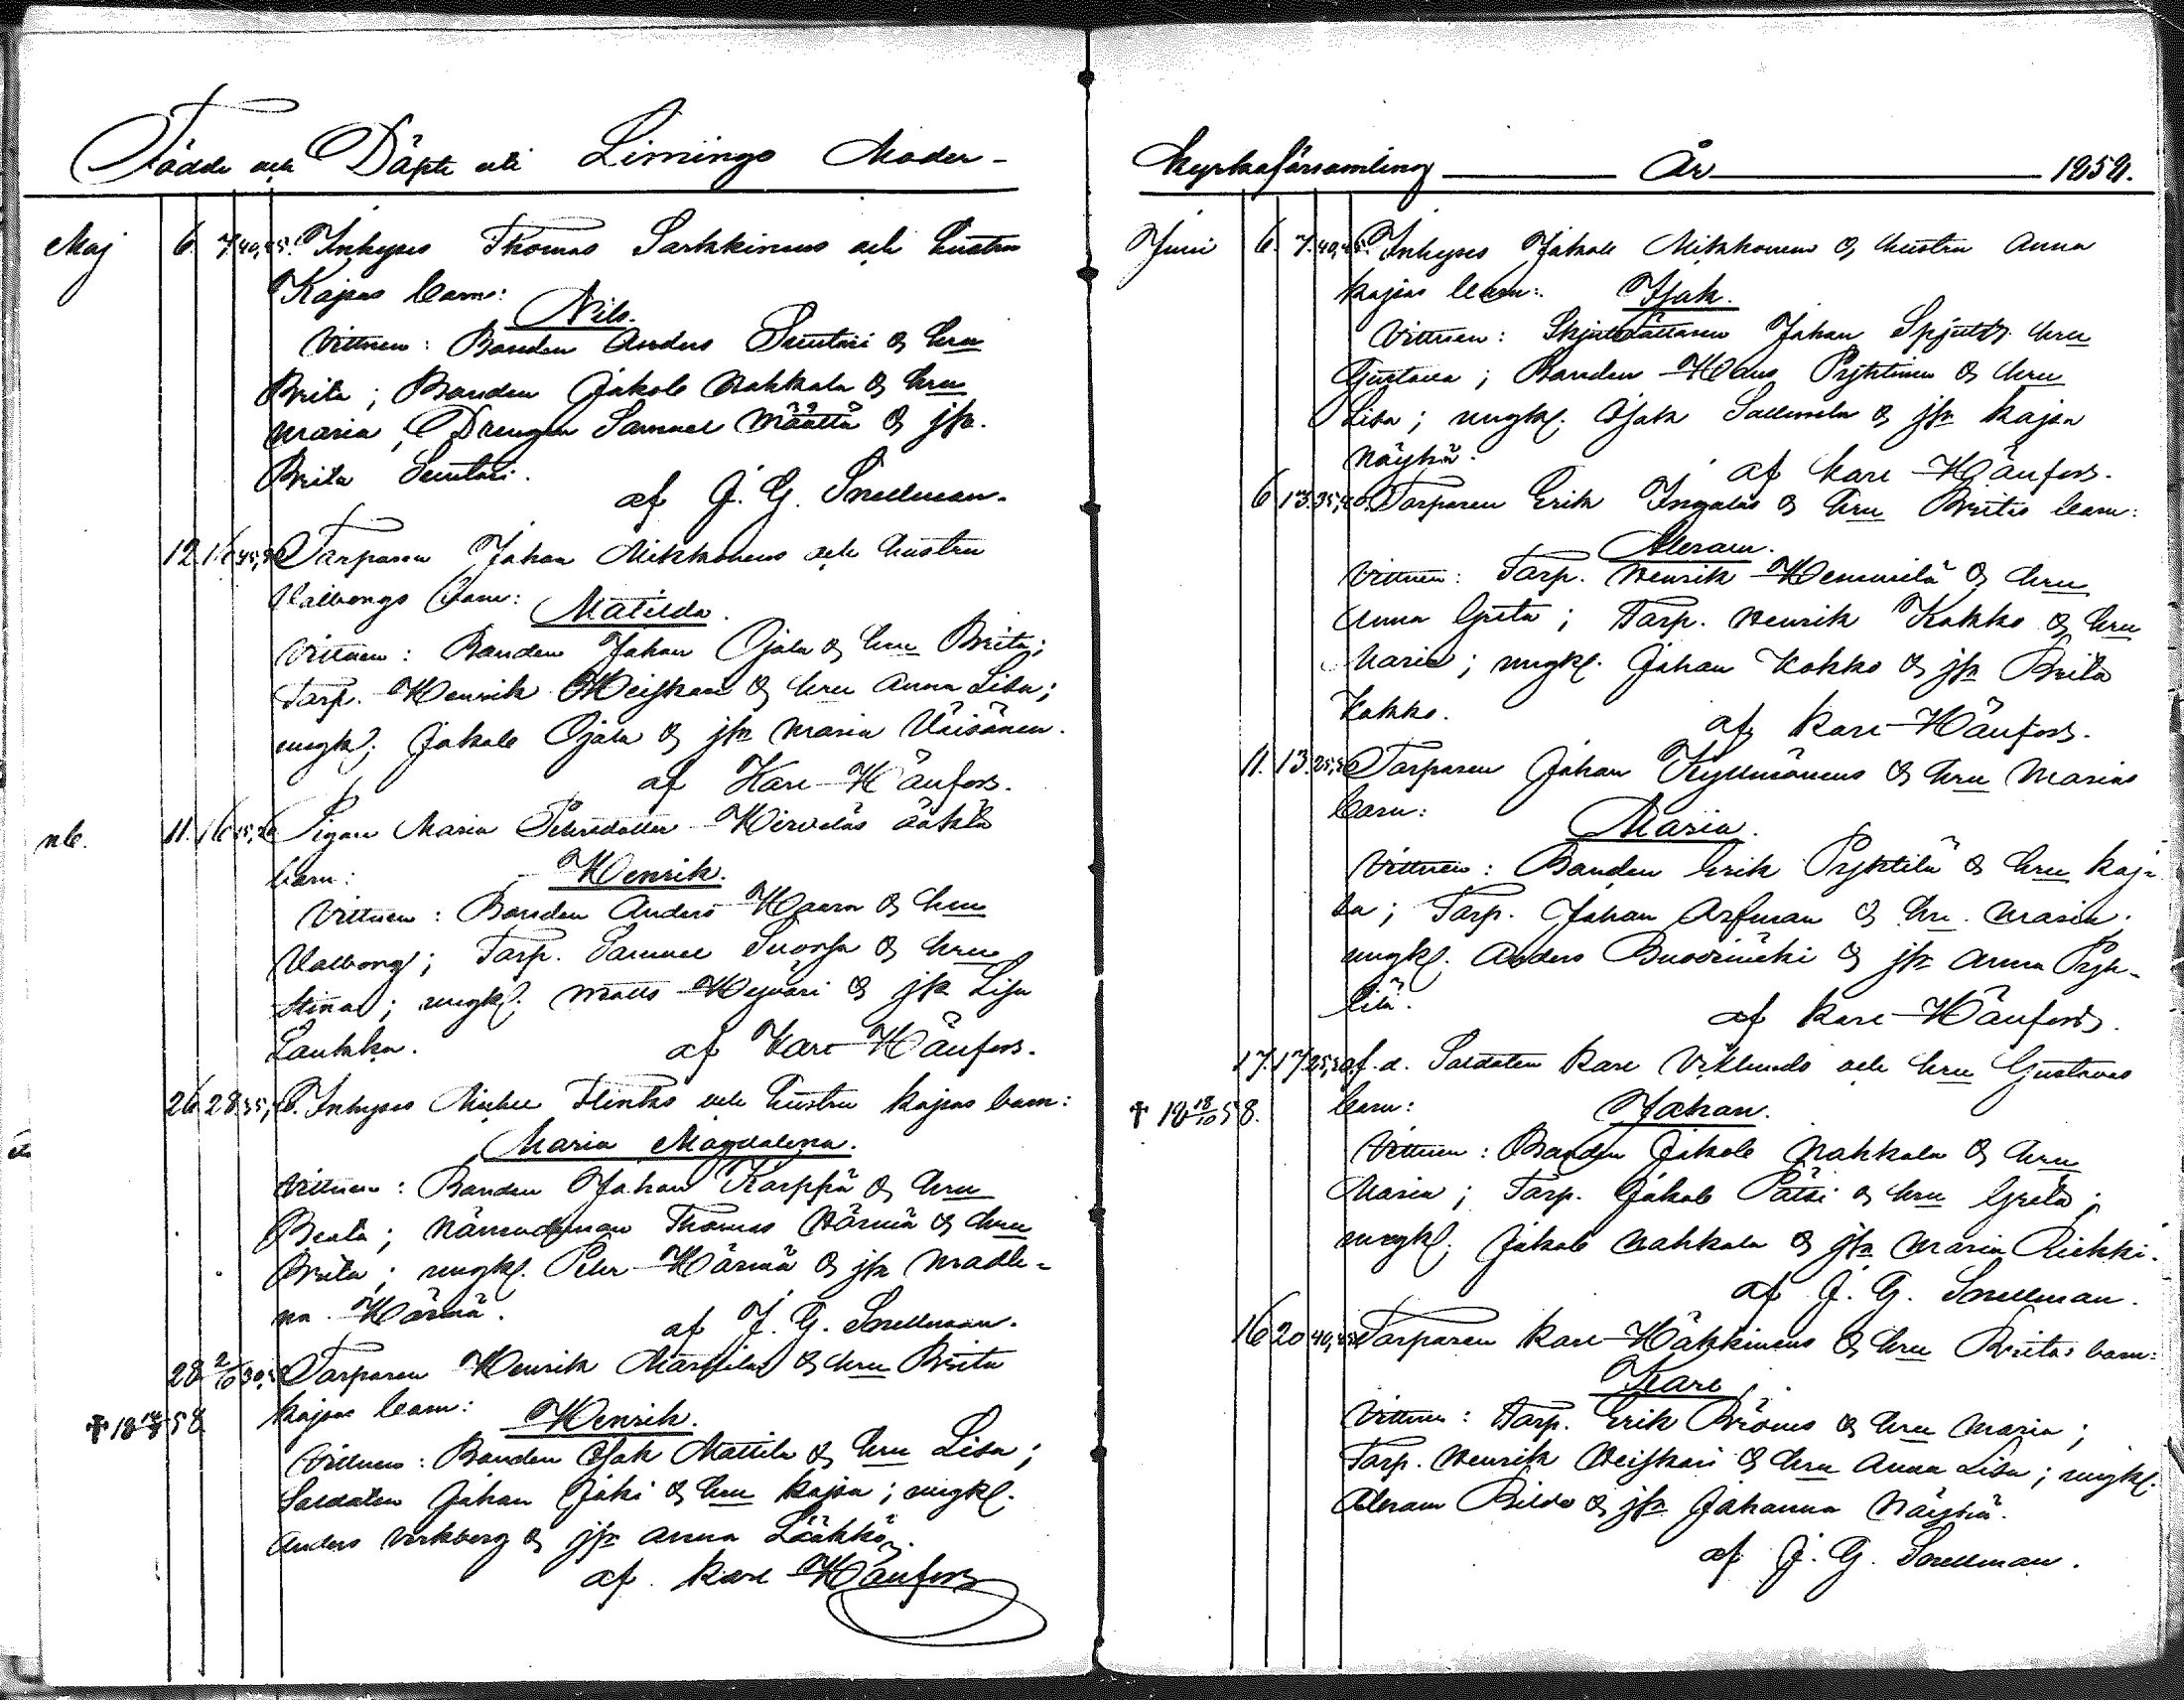 Födde och Döpte uti Limingo Moder-
Maj 6. 7. 40,45. Inhyses Thomas Sarkkinens och hustru
Kajsas barn:
Nils.
Vittnen: Bonden Anders Suutari & hru
Brita; Bonden Jakob Nahkala & hru
Maria; Drengen Samuel Määttä & jfr
Brita Suutari.
af J. G. Snellman.
12. 16. Torparen Johan Mikkonens och hustru
Valborgs barn: Matilda.
Vittnen: Bonden Johan Ojala & hru Brita;
Torp. Henrik Heiskari & hru Anna Lisa;
ungkl. Jakob Ojala & jfr Maria Väisänen.
af Karl Hänfors.
11. 16. Pigan Maria Petersdotter Hirveläs oäkta
barn: Henrik.
Vittnen: Bonden Anders Haara & hru
Valborg; Torp. Samuel Suorsa & hru
Stina; ungkl. Matts Hyväri & jfr Lisa
Laukka. af Karl Hänfors.
26. 28. Inhyses Michel Flinks och hustru Kajsas barn:
Maria Magdalena.
Vittnen: Bonden Johan Karppä & hru
Beata; Nämndeman Thomas Härmä & hru
Brita; ungkl. Peter Härmä & jfr Madle-
na Härmä. af J. G. Snellman.
28 2/6 Torparen Henrik Marttilas & hru Brita
Kajsas barn: Henrik.
Vittnen: Bonden Isak Mattila & hru Lisa;
Soldaten Johan Joki & hru Kajsa; ungkl.
Anders Verkberg & jfr Anna Lääkkö.
af Karl Hänfors
Kyrkoförsamling År 1858.
Juni 6. 7. 40,45. Inhyses Jakob Mikkonens & hustru Anna
Kajsas barn: Isak.
Vittnen: Johan Spjut & hru
Gustava; Bonden Hans Pyhtinen & hru
Lisa; ungkl. Isak Sallinela & jfr Kajsa
Näyhä.
af Karl Hänfors.
6 13. 35,40. Torparen Erik Ingalas & hru Britas barn:
Abram.
Vittnen: Torp. Henrik Hemmilä & hru
Anna Greta; Torp. Henrik Kokko & hru
Maria; ungkl. Johan Kokko & jfr Brita
Kokko.
af Karl Hänfors.
11. 13. Torparen Johan Kyllmänens & hru Marias
barn:
Maria.
Vittnen: Bonden Erik Pyhtilä & hru Kaj-
sa; Torp. Johan Asfuran & hru Maria;
ungkl. Anders & jfr Anna Pyh-
tilä.
af Karl Hänfors.
17. 17. af.d. Soldaten Karl Viklunds och hru Gustavas
† 18 18/10 58. barn: Johan.
Vittnen: Bonden Jakob Nahkala & hru
Maria; Torp. Jakob Pätsi & hru Greta;
ungkl. Jakob Nahkala & jfr Maria Riekki.
af J. G. Snellman.
16 20 40,45. Torparen Karl Häkkinens & hru Britas barn:
Karl.
Vittnen: Torp. Erik & hru Maria;
Torp. Henrik Heiskari & hru Anna Lisa; ungkl.
Abram & jfr Johanna Näyhä.
af J. G. Snellman.